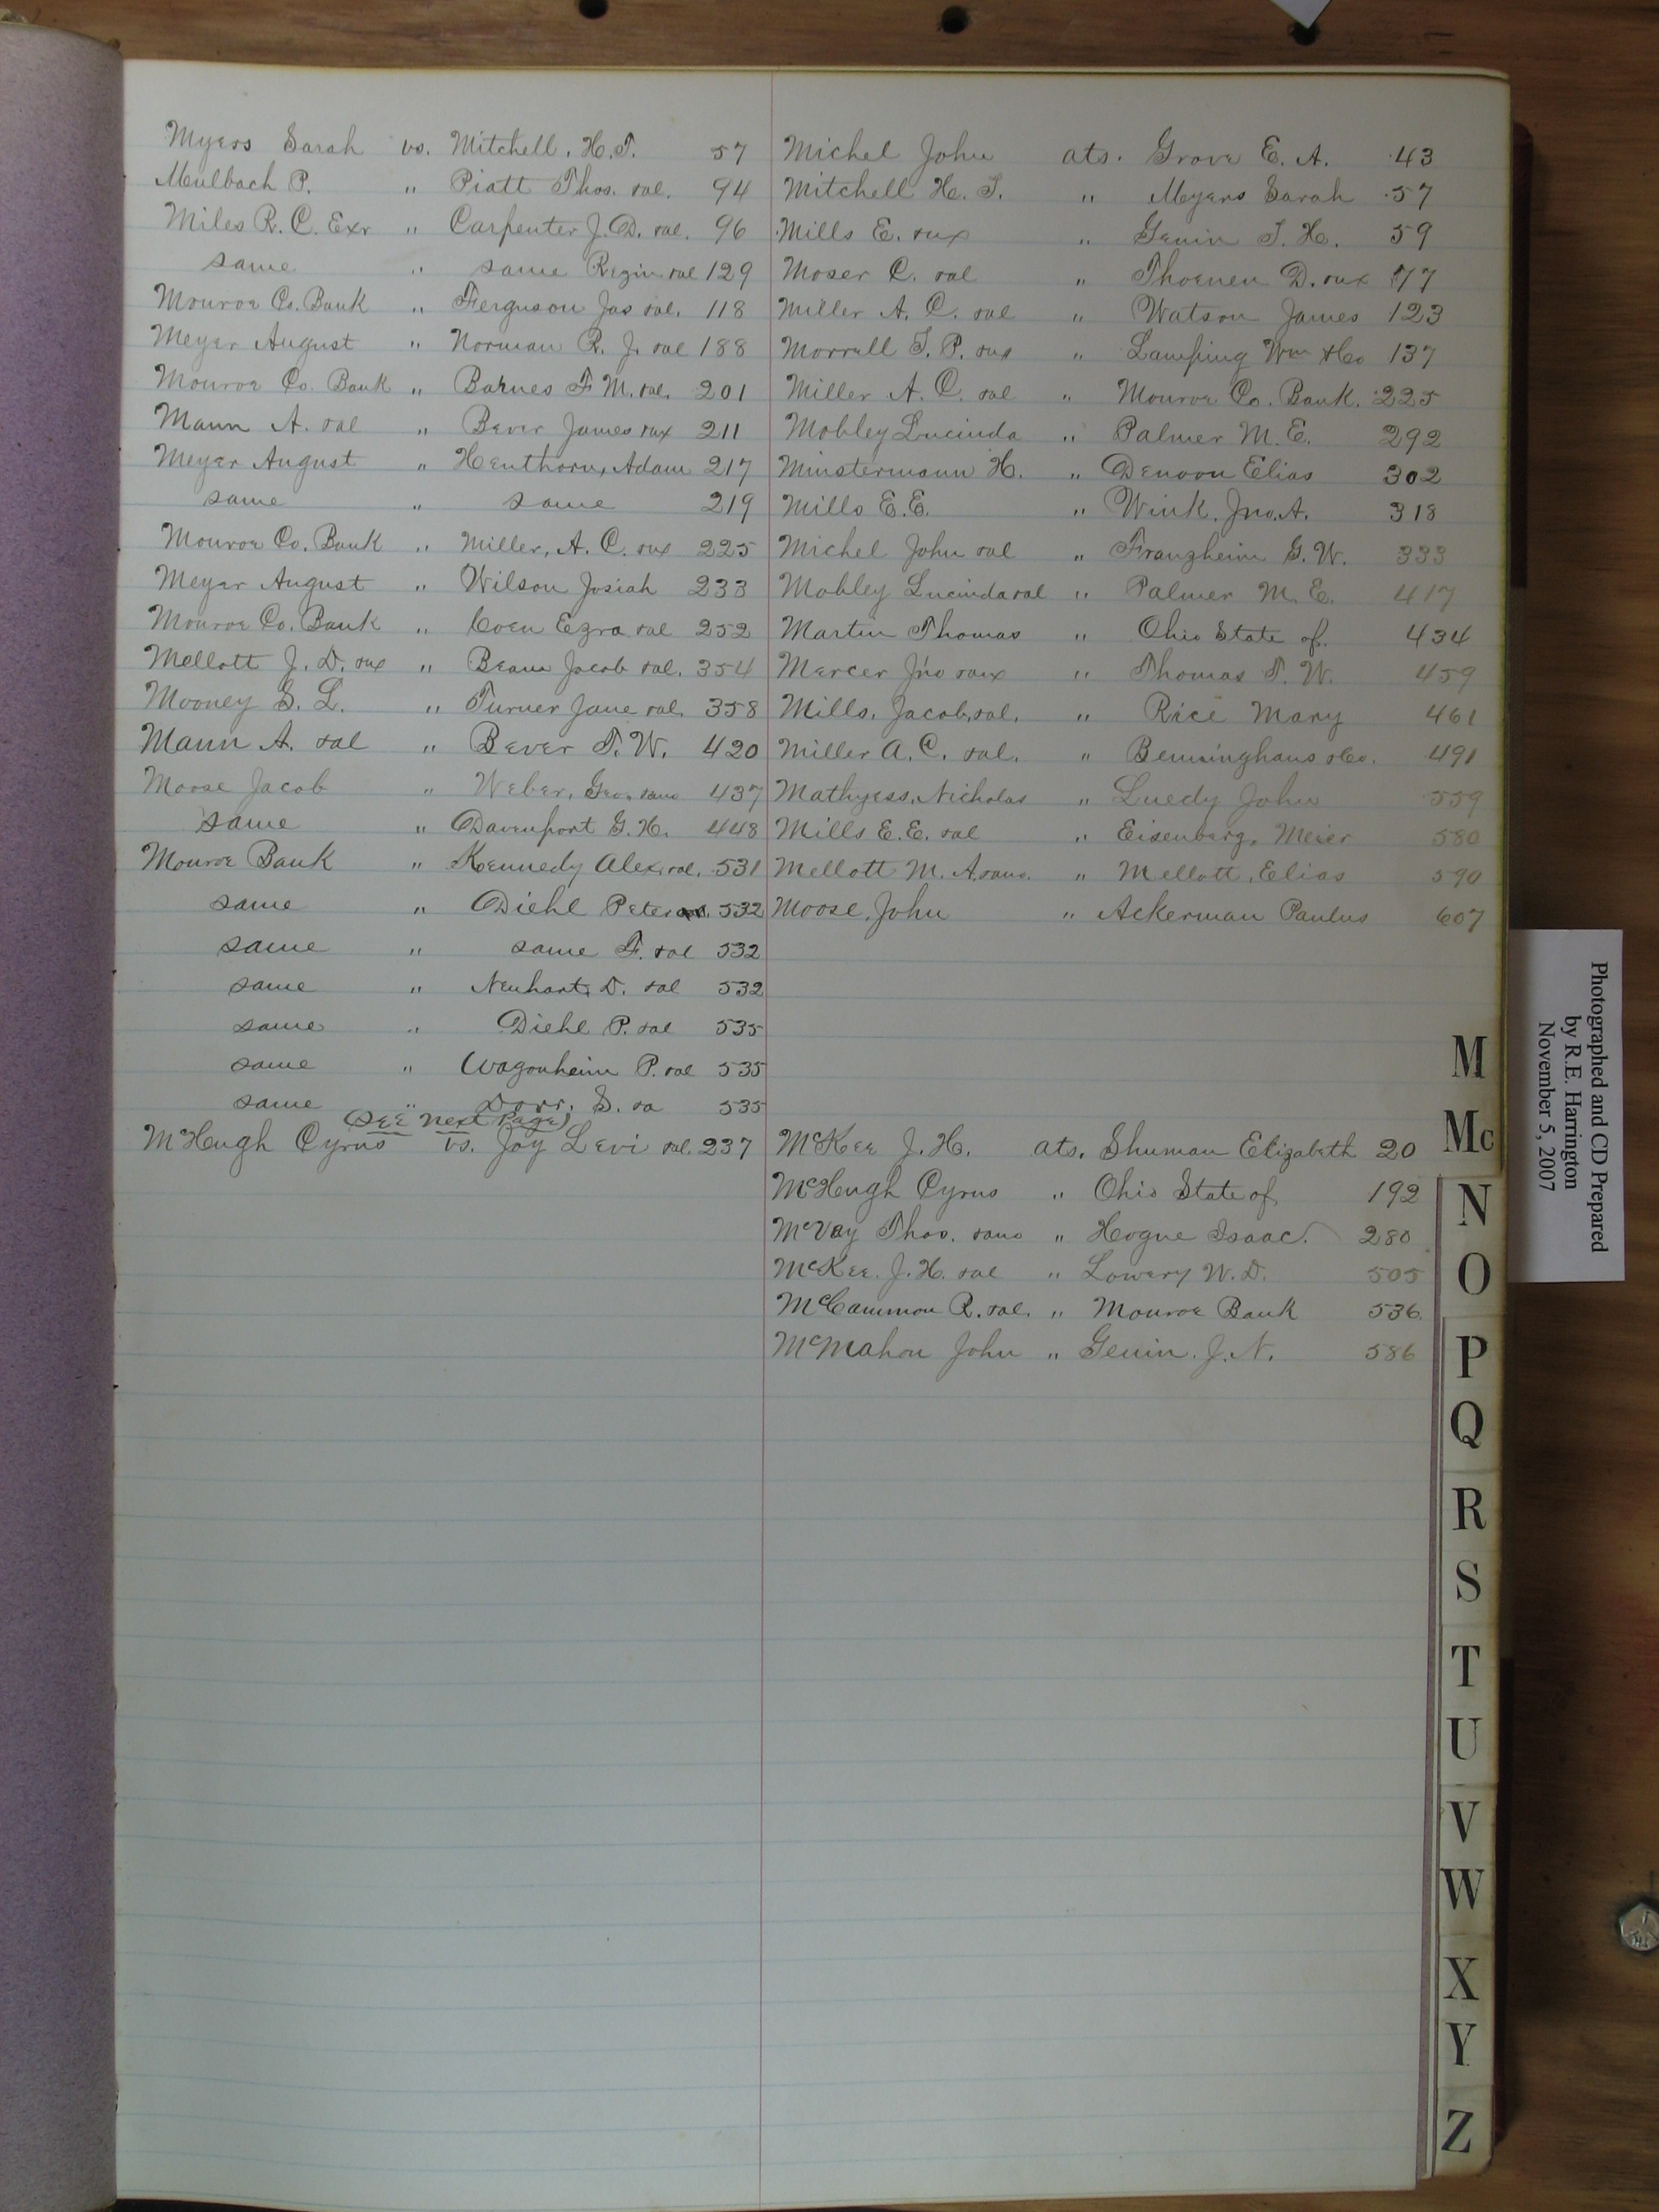 Myers Sarah vs. Mitchell, H. T. 57
Mulbach P. " Piatt Thos. &al. 94
Miles R. C. Exr " Carpenter J. D. &al. 96
same " same Rezin &al 129
Monroe Co. Bank " Ferguson Jas &al. 118
Meyer August " Norman R. J. &al 188
Monroe Co. Bank " Barnes F. M. &al. 201
Mann A. &al " Bever James &ux 211
Meyer August " Henthorn, Adam 217
same " same 219
Monroe Co. Bank " Miller, A. C. &ux 225
Meyer August " Wilson Josiah 233
Monroe Co. Bank " Coen Ezra &al 252
Mellott J. D. &ux " Beam Jacob &al. 354
Mooney S. L. " Turner Jane &al. 358
Mann A. &al " Bever T. W. 420
Moose Jacob " Weber, Geo. 437
same " Davenport G. H. 448
Monroe Bank " Kennedy Alex &al. 531
same " Diehl Peter 532
same " same F. &al 532
same " Neuhart D. &al 532
same " Diehl P. &al 535
same " Wagonheim P. &al 535
same " Dorr. S. &a 535
(See Next Page)
McHugh Cyrus vs. Joy Levi &al. 237
Michel John ats. Grove E. A. 43
Mitchell H. T. " Meyers Sarah 57
Mills E. &ux " Genin T. H. 59
Moser C. &al " Thoenen D. &ux 77
Miller A. C. &al " Watson James 123
Morrell T. P. &ux " Lamping Wm &Co 137
Miller A. C. &al " Monroe Co. Bank. 225
Mobley Lucinda " Palmer M. E. 292
Minstermann H. " Denoon Elias 302
Mills E. E. " Wink. Jno. A. 318
Michel John &al " Franzheim G. W. 333
Mobley Lucinda &al " Palmer M. E. 417
Martin Thomas " Ohio State of. 434
Mercer Jno &ux " Thomas T. W. 459
Mills, Jacob, &al. " Rice Mary 461
Miller A. C. &al. " Benninghaus &Co. 491
Mathyess, Nicholas " Luedy John 559
Mills E. E. &al " Eisenbarg, Meier 580
Mellott M. A. " Mellott, Elias 590
Moose, John " Ackerman Paulus 607
McKee J. H. ats. Shuman Elizabeth 20
McHugh Cyrus " Ohio State of 192
McVay Thos. " Hogue Isaac. 280
McKee. J. H. &al " Lowery W. D. 505
McCammon R. &al. " Monroe Bank 536
McMahon John " Genin. J. N. 586
M
Mc
N
O
P
Q
R
S
T
U
V
W
X
Y
Z
Photographed and CD Prepared
by R.E. Harrington
November 5, 2007